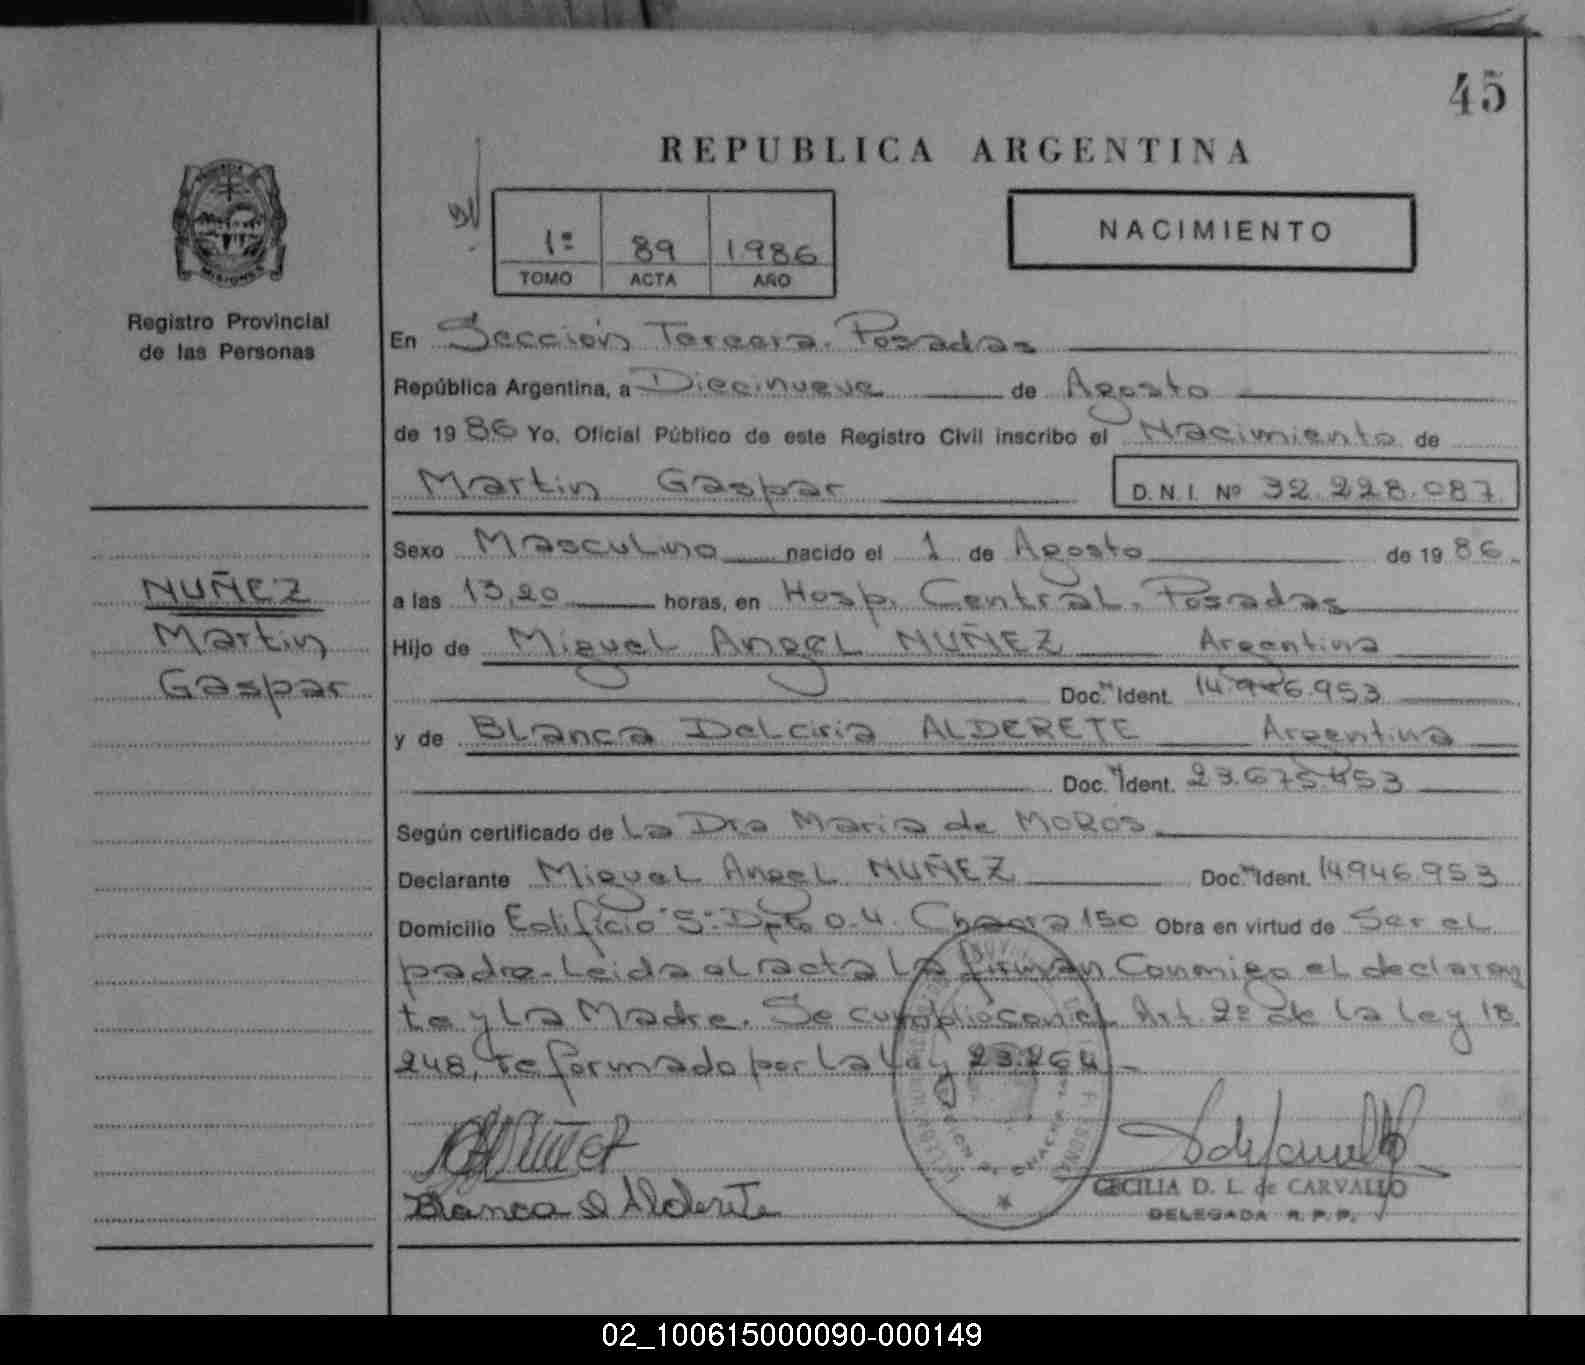 45
REPUBLICA ARGENTINA
NACIMIENTO
1º 89 1986
TOMO ACTA AÑO
MISIONES
Registro Provincial
de las Personas
En Sección Tercera. Posadas
República Argentina, a Diecinueve de Agosto
de 1986 Yo, Oficial Público de este Registro Civil inscribo el Nacimiento de
Martin Gaspar D. N. I. Nº 32.228.087
Sexo Masculino nacido el 1 de Agosto de 1986.
NUÑEZ
Martin
Gaspar
a las 13,20 horas, en Hosp. Central. Posadas
Hijo de Miguel Angel NUÑEZ Argentina
Doc. Ident. 14.946.953
y de Blanca Delciria ALDERETE Argentina
Doc. Ident. 23.675.853
Según certificado de La Dra Maria de MOROS
Declarante Miguel Angel NUÑEZ Doc. Ident. 14946953
Domicilio Edificio "S" Dpto 0-4. Chacra 150 Obra en virtud de Ser el
padre. Leida el acta la firman Conmigo el declaran
te y La Madre. Se cumplio con el Art. 2º de la Ley 18
248, reformado por la Ley 23.264 -
Nuñez
Blanca D Alderete
CECILIA D. L. de CARVALLO
DELEGADA R. P. P.
02_100615000090-000149